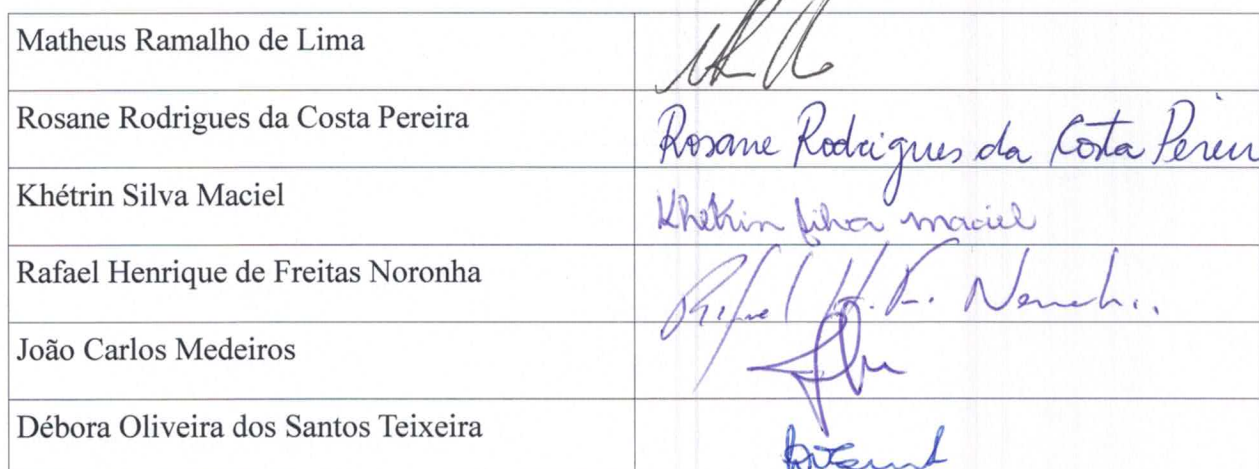 Matheus Ramalho de Lima
Rosane Rodrigues da Costa Pereira Rosane Rodrigues da Costa Pereir
Khétrin Silva Maciel Khétrin Silva maciel
Rafael Henrique de Freitas Noronha Rafael H. F.
João Carlos Medeiros
Débora Oliveira dos Santos Teixeira